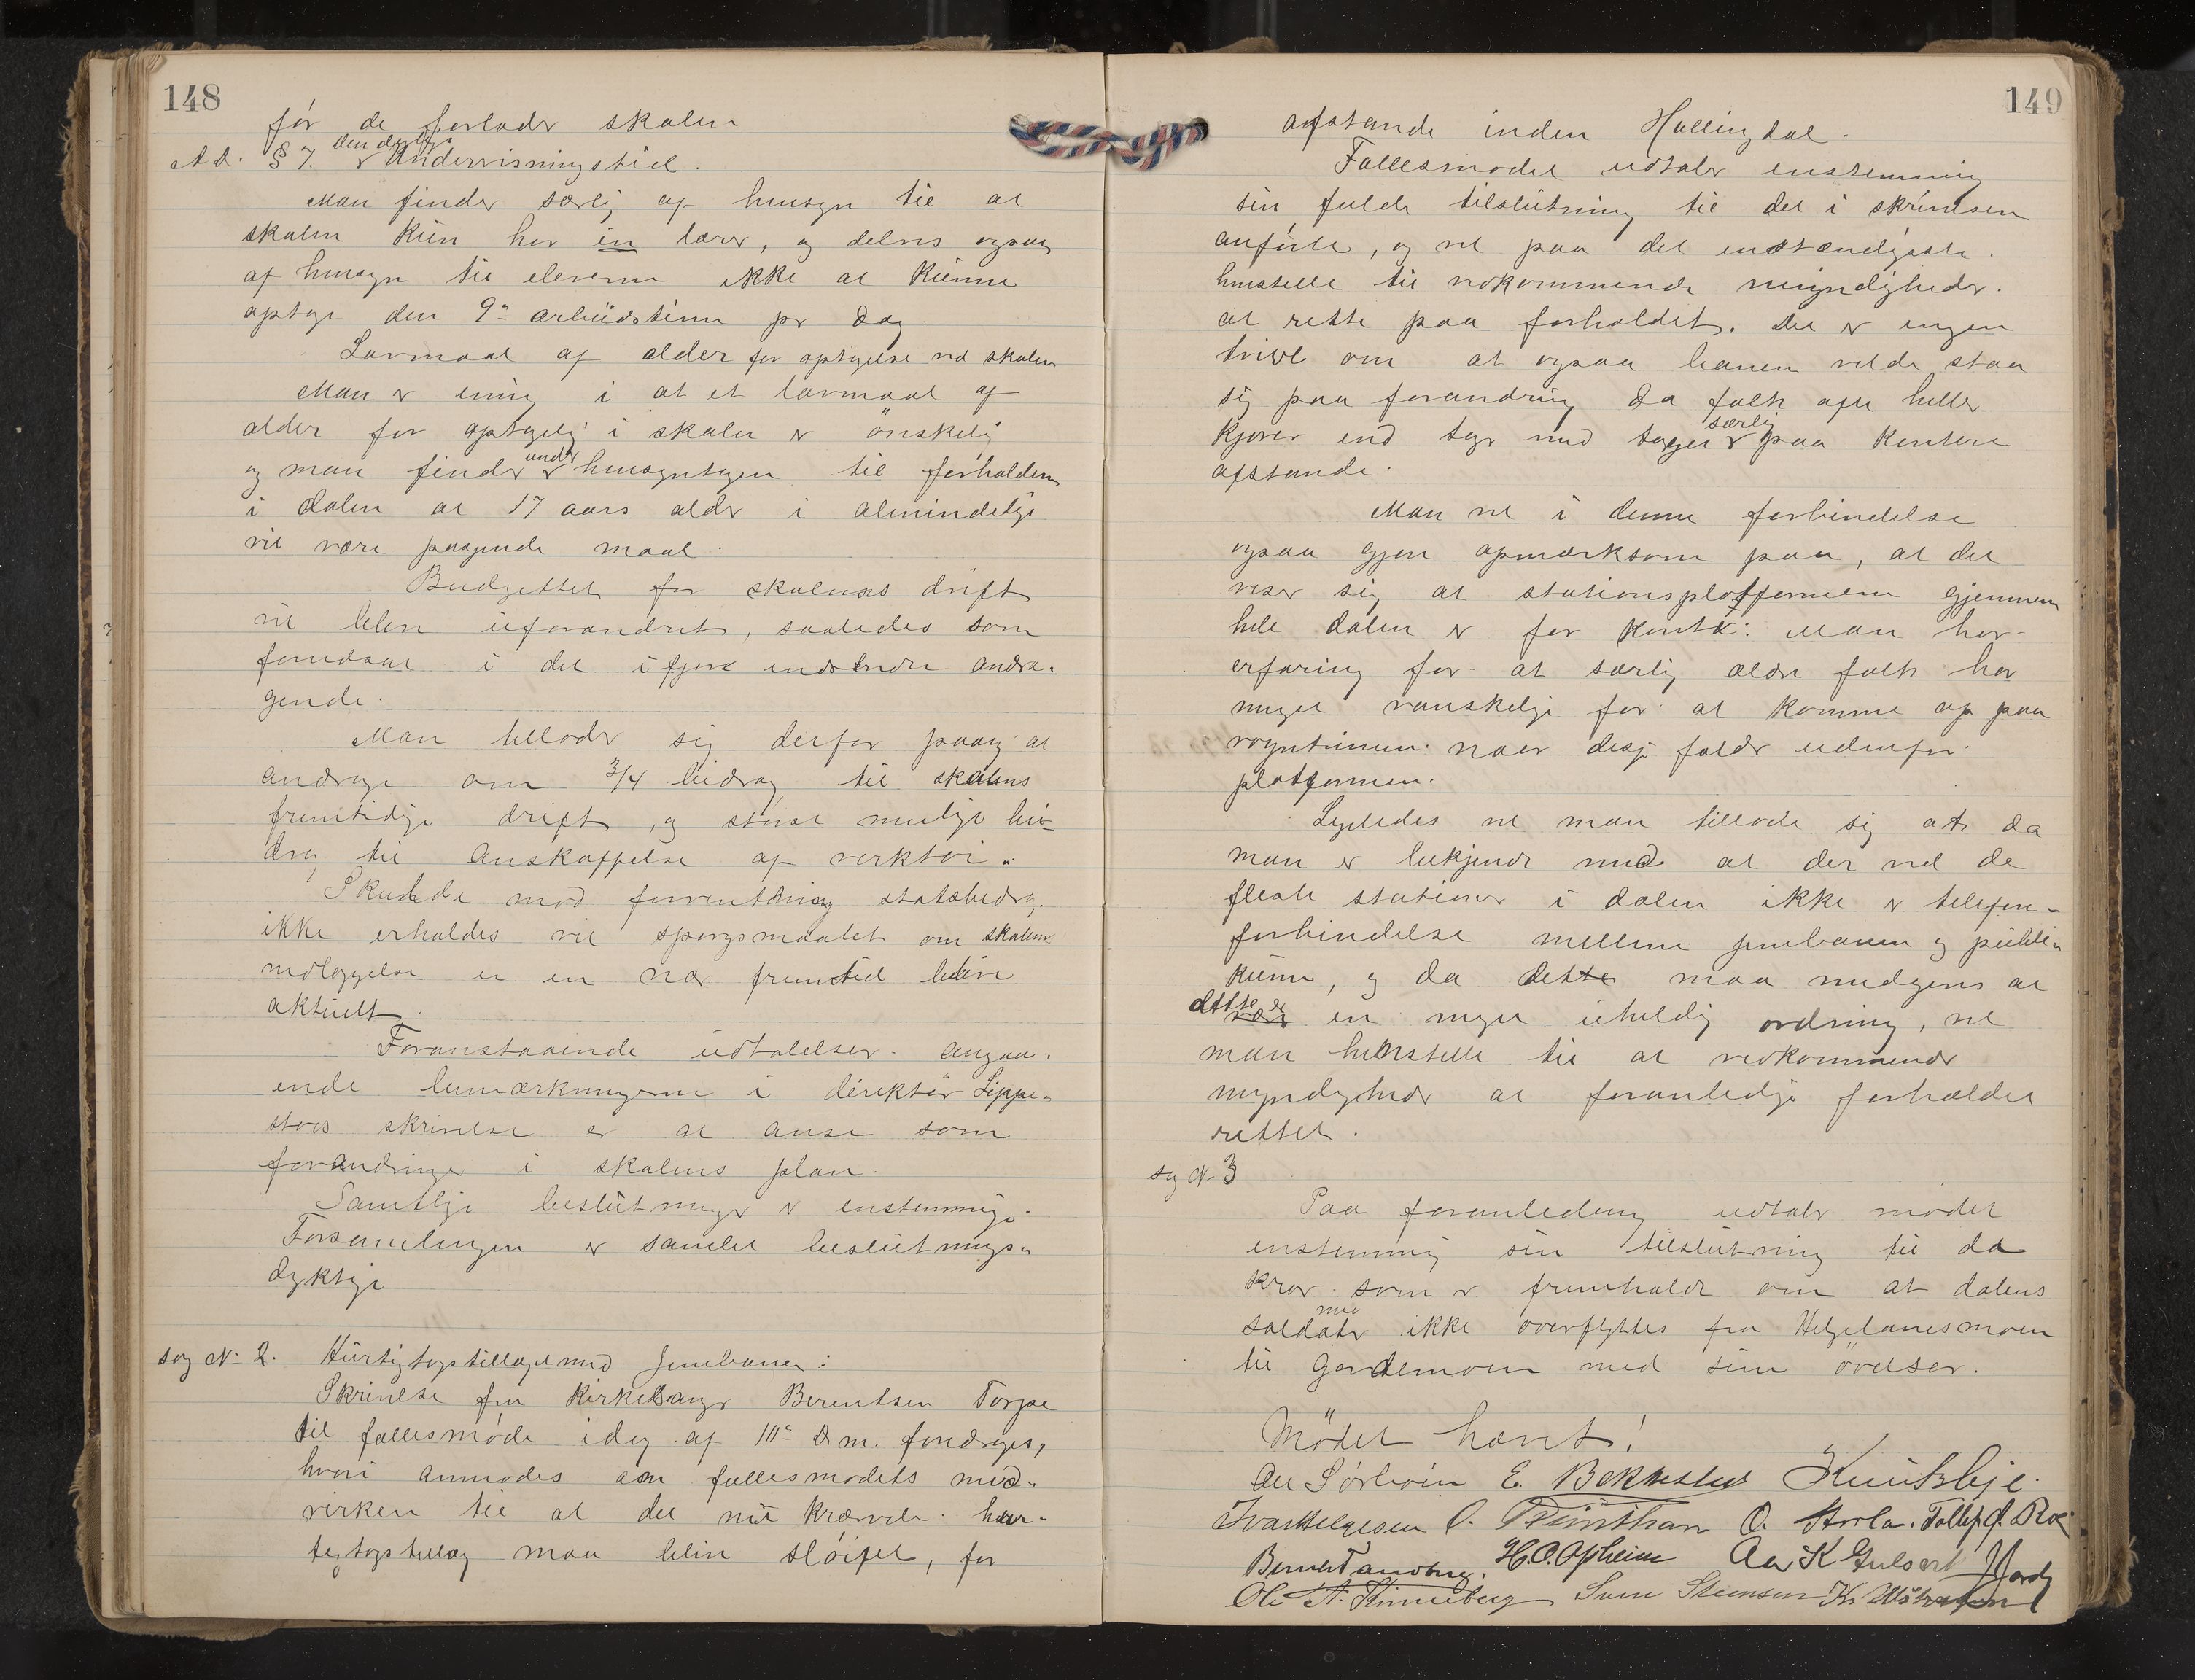 148
før de forlader skolen
Ad. § 7. den daglige Undervisningstid.
Man finder særlig af hensyn til at
skolen kun har én lærer, og delvis ogsaa
af hensyn til eleverne ikke at kunne
optage den 9de arbeidstime pr dag.
Lavmaal af alder for optagelse ved skolen
Man er enig i at et lavmaal af
alder for optagelse i skolen er ønskelig
og man finder under hensyntagen til forholdene
i dalen at 17 aars alder i almindelige
vil være passende maal.
Budgettet for skolens drift
vil blive uforandret, saaledes som
forudsat i det ifjor indsendte andra-
gende.
Man tillader sig derfor paany at
andrage om 3/4 bidrag til skolens
fremtidige drift, og størst mulige bi-
drag til anskaffelse af verktøi.
Skulde mod forventning statsbidrag
ikke erholdes vil spørgsmaalet om skolens
nedlæggelse i en nær fremtid blive
aktuelt.
Foranstaaende udtalelser angaa-
ende bemærkningerne i direktør Lippe-
stads skrivelse er at anse som
forandringer i skolens plan.
Samtlige beslutninger er enstemmige.
Forsamlingen er samlet beslutnings-
dygtige
sag N. 2. Hurtigtogstillæget med Jernbanen:
Skrivelse fra Kirkesanger Berentsen Torpe
til fællesmøde idag af 11te ds m. foredrages,
hvori anmodes om fællesmødets med-
virken til at det nu krævede hur-
tigtogstillæg maa blive sløifet, for
149
afstande inden Hallingdal.
Fællesmødet udtaler enstemmig
sin fulde tilslutning til det i skrivelsen
anførte, og vil paa det indstændigste
henstille til vedkommende myndigheder
at rette paa forholdet. Det er ingen
tvivl om at ogsaa banen vilde staa
sig paa forandring da folk ofte heller
kjører end tager med toget særlig paa kortere
afstande.
Man vil i denne forbindelse
ogsaa gjøre opmærksom paa, at det
viser sig at stationsplatformene gjennem
hele dalen er for korte. Man har
erfaring for at særlig ældre folk har
meget vanskelig for at komme op paa
vogntrinnene naar disse falder udenfor
platformen.
Ligeledes vil man tillade sig at da
man er bekjendt med at der ved de
fleste stationer i dalen ikke er telefon-
forbindelse mellem jernbanen og publi-
kum, og da dette maa medgives at
dette er en meget uheldig ordning, vil
man henstille til at vedkommende
myndigheder at foranledige forholdet
rettet.
sag N. 3
Paa foranledning udtaler mødet
enstemmig sin tilslutning til det
krav som er fremholdt om at dalens
soldater maa ikke overflyttes fra Helgelandsmoen
til Gardemoen med sine øvelser.
Mødet hævet!
E. Bekkestad
Ivar Helgesen O.
H.O. Opheim
Ole A. Finneberg Sven Steensen